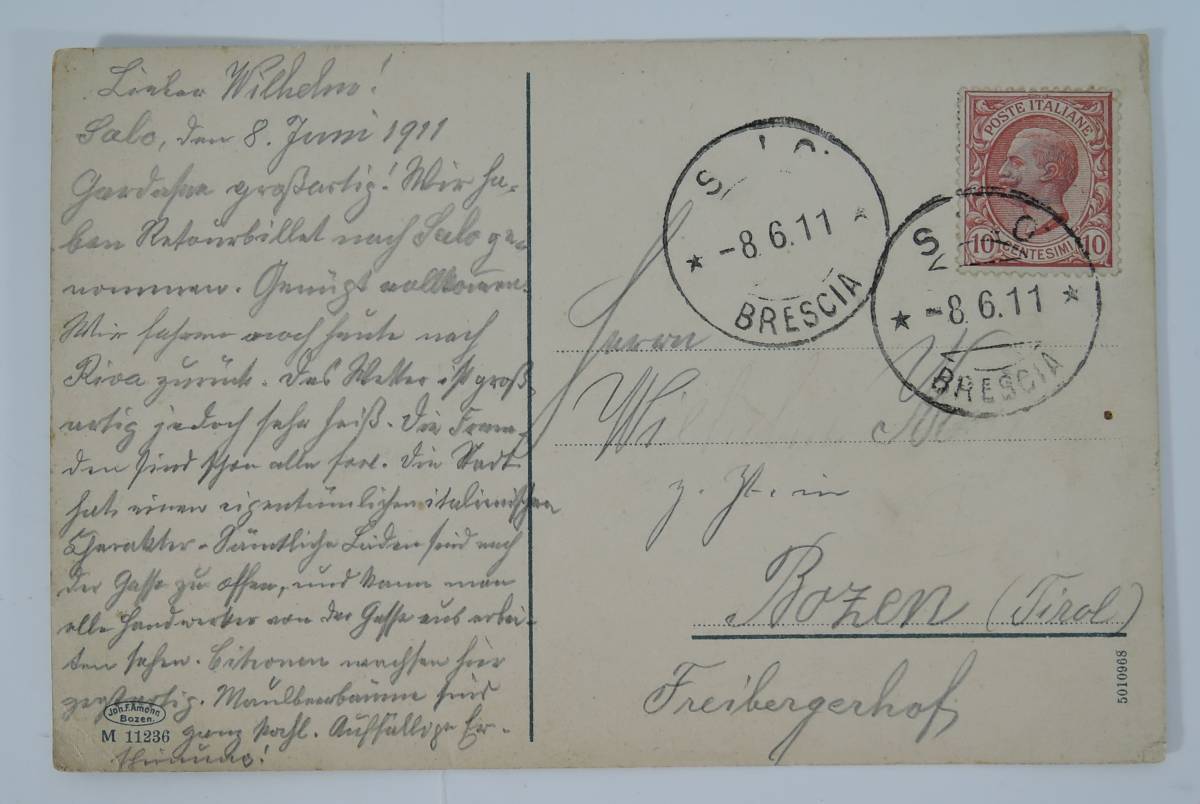 Lieber Wilhelm!
Salo, den 8. Juni 1911
Gardasee großartig! Wir ha-
ben Retourbillet nach Salo ge-
nommen. Genügt vollkommen.
Wir fahren noch heute nach
Riva zurück. Das Wetter ist groß-
artig jedoch sehr heiß. Die Frem-
den sind schon alle fort. Die Stadt
hat einen eigentümlichen italienischen
Charakter - Sämtliche Läden sind nach
der Gasse zu offen, und kann man
alle Handwerker von der Gasse aus arbei-
ten sehen. Citronen wachsen hier
großartig. Maulbeerbäume sind
ganz kahl. Auffällige Er-
scheinung!
Joh. F. Amonn
Bozen.
M 11236
POSTE ITALIANE
10 CENTESIMI 10
SALO
-8.6.11
BRESCIA
SALO
-8.6.11
BRESCIA
Herrn
z. Zt. in
Bozen (Tirol)
Freibergerhof
5010968